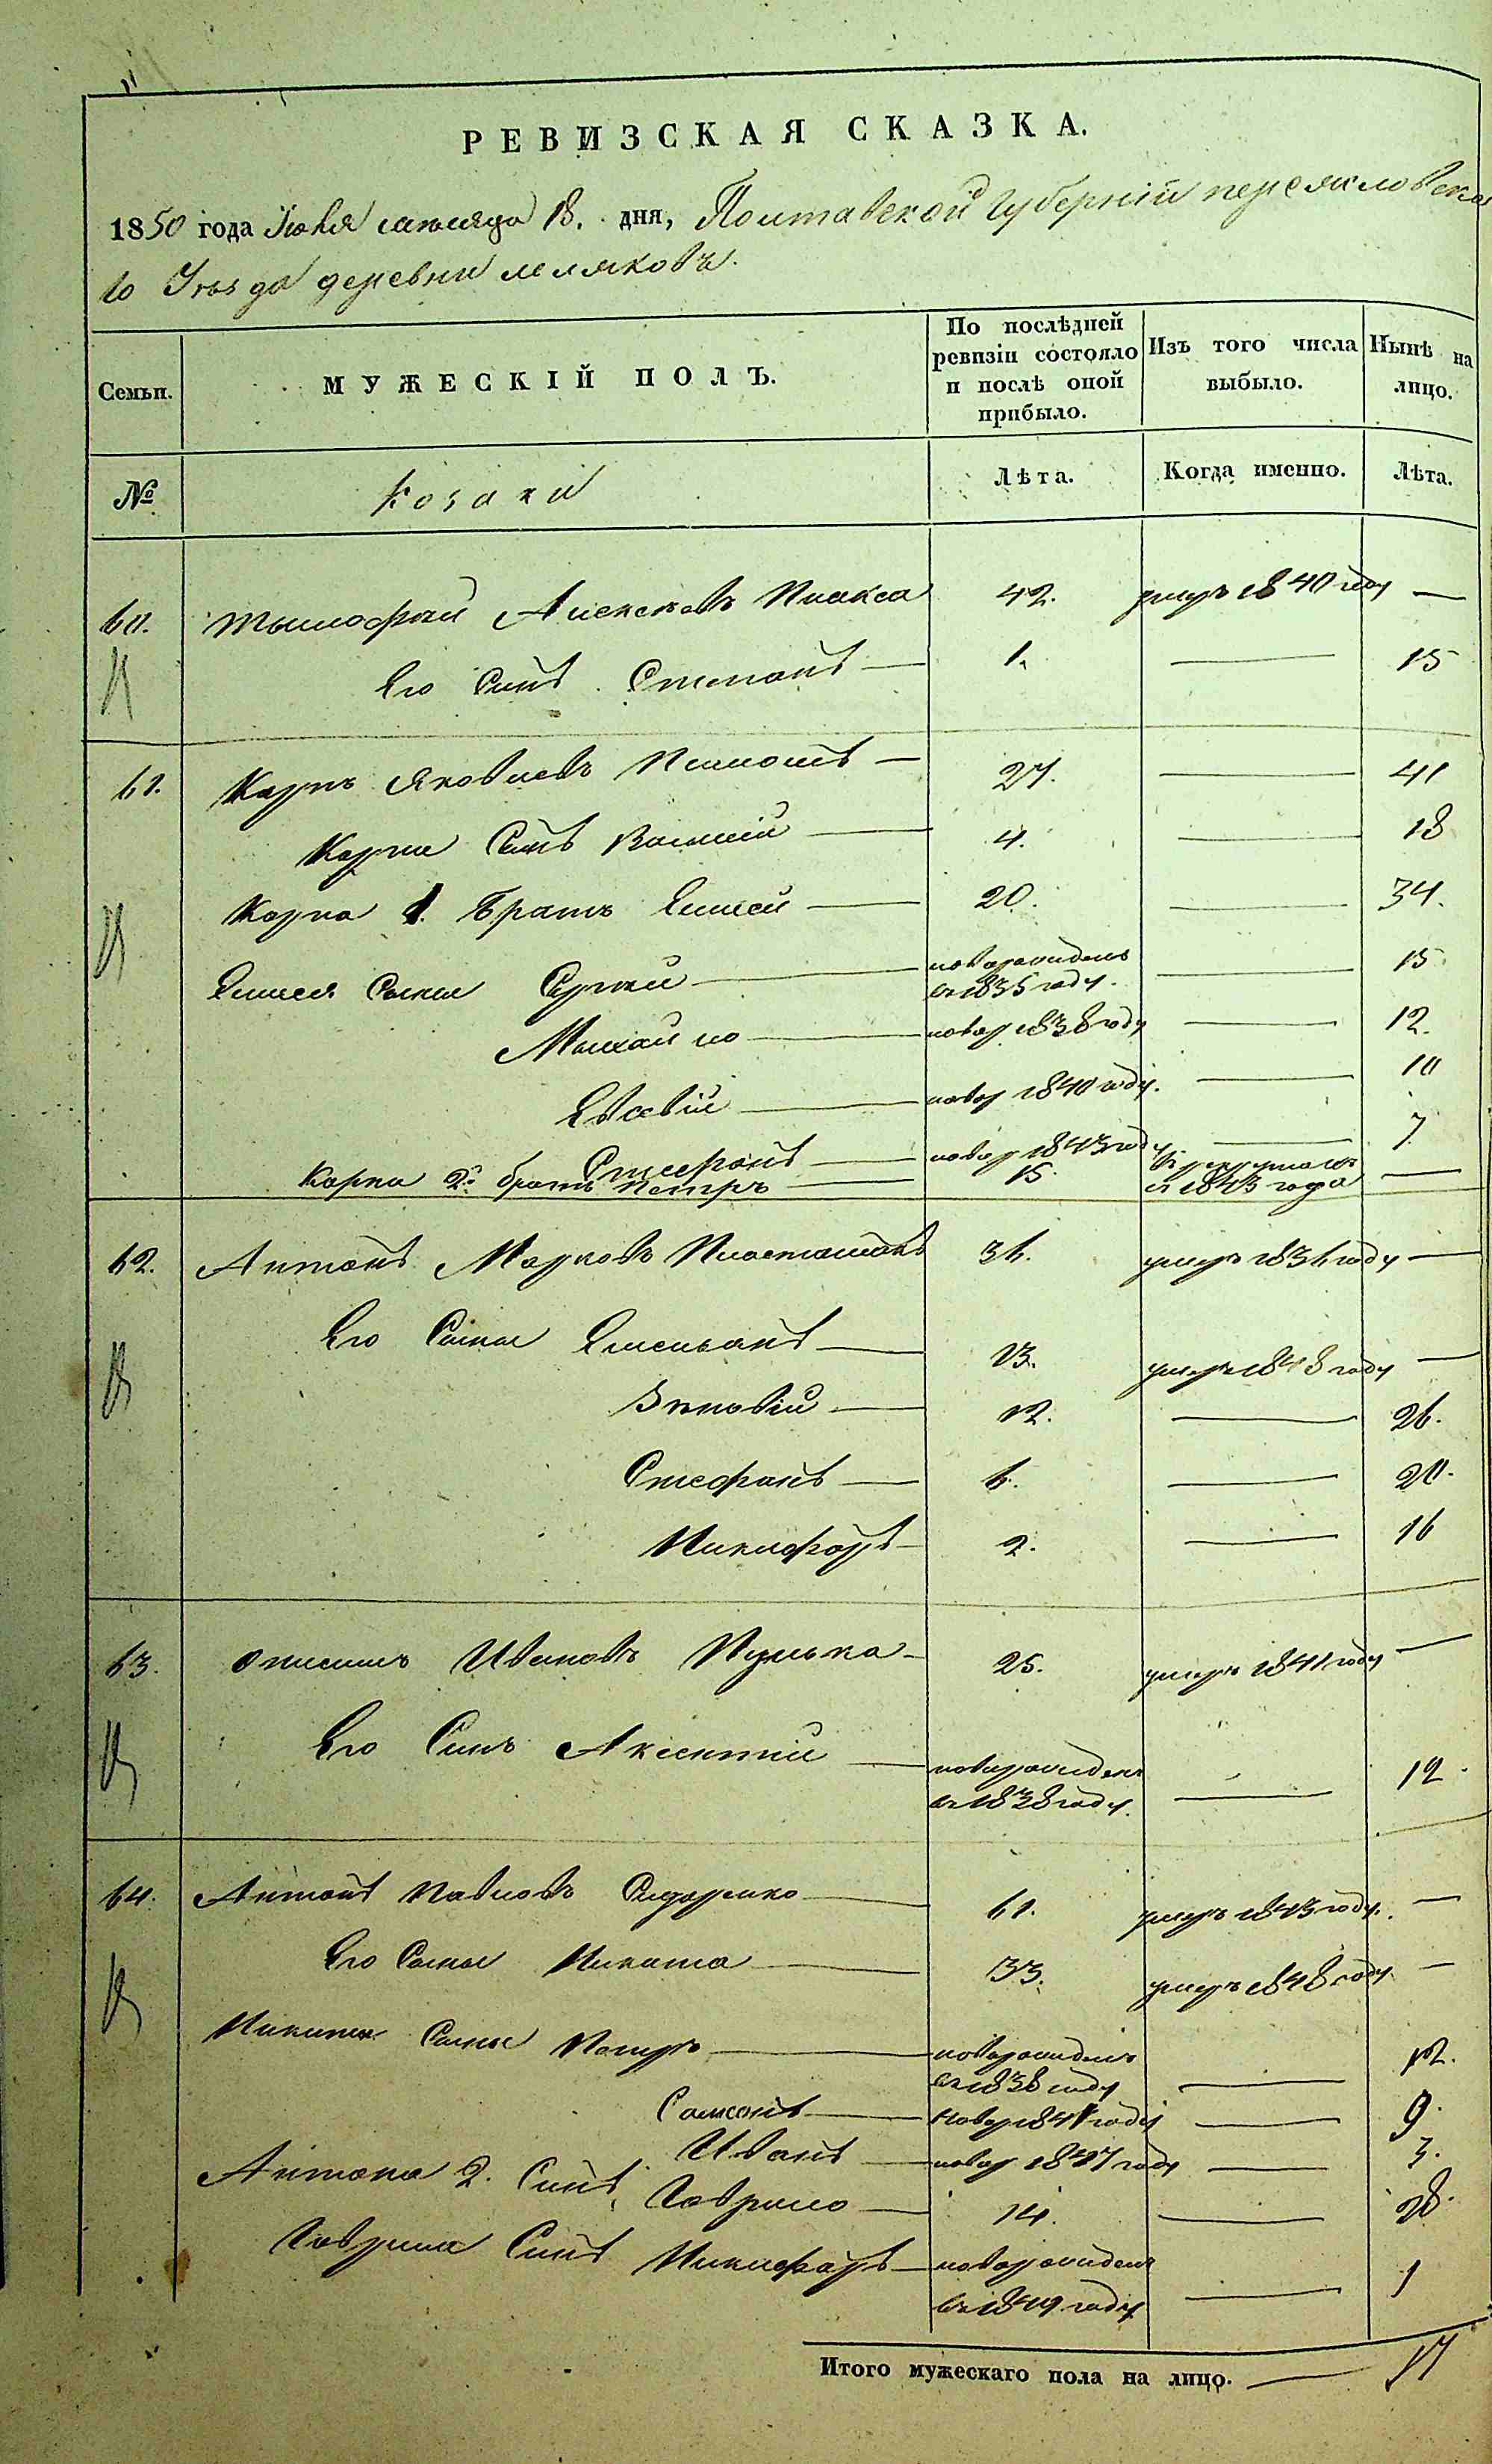 РЕВИЗСКАЯ СКАЗКА.
1850 года Июня месяца 18. дня, Полтавской Губерніи переясловска
го Уѣзда деревни
Семьи.
МУЖЕСКІЙ ПОЛЪ.
По послѣдней ревизіи состояло и послѣ оной прибыло.
Изъ того числа выбыло.
Нынѣ на лицо.
№
Козаки
Лѣта.
Когда именно.
Лѣта.
60. Тымофѣй Алексѣевъ Плакса 42. умеръ 1840 году —
Его Синъ Степанъ — 1. — 15
61. Карпъ Яковлевъ — 27. — 41
Карпа Синъ Василій — 4. — 18
Карпа 1. Братъ Елисей — 20. — 34.
Елисея Сыны Сергѣй — новорожденъ въ 1835 году. — 15
Михайло — новор 1838 году — 12.
Евсевій — новор 1840 году. — 10
Стефанъ — новор 1843 году — 7
Карпа 2й братъ Петръ — 15. въ рекрутахъ съ 1843 года —
62. Антонъ Марковъ 36. умеръ 1836 году —
Его Сыны Емельянъ — 13. умеръ 1848 году —
Зѣновій — 12. — 26.
Стефанъ — 6. — 20.
Никифоръ — 2. — 16
63. Онисимъ Ивановъ Пулька — 25. умеръ 1841 году —
Его Синъ Аксентій — новорожденъ въ 1838 году. — 12
64. Антонъ Павловъ Сидоренко — 61. умеръ 1843 году. —
Его Сыны Никита — 33. умеръ 1848 году. —
Никиты Сыны Петръ — новорожденъ въ 1838 году — 12.
Самсонъ — Новор 1841 году — 9.
Иванъ — новор 1847 году — 3.
Антона 2. Синъ Гаврило — 14. — 28.
Гаврила Синъ Никифоръ — новорожденъ въ 1849 году — 1
Итого мужескаго пола на лицо. — 17